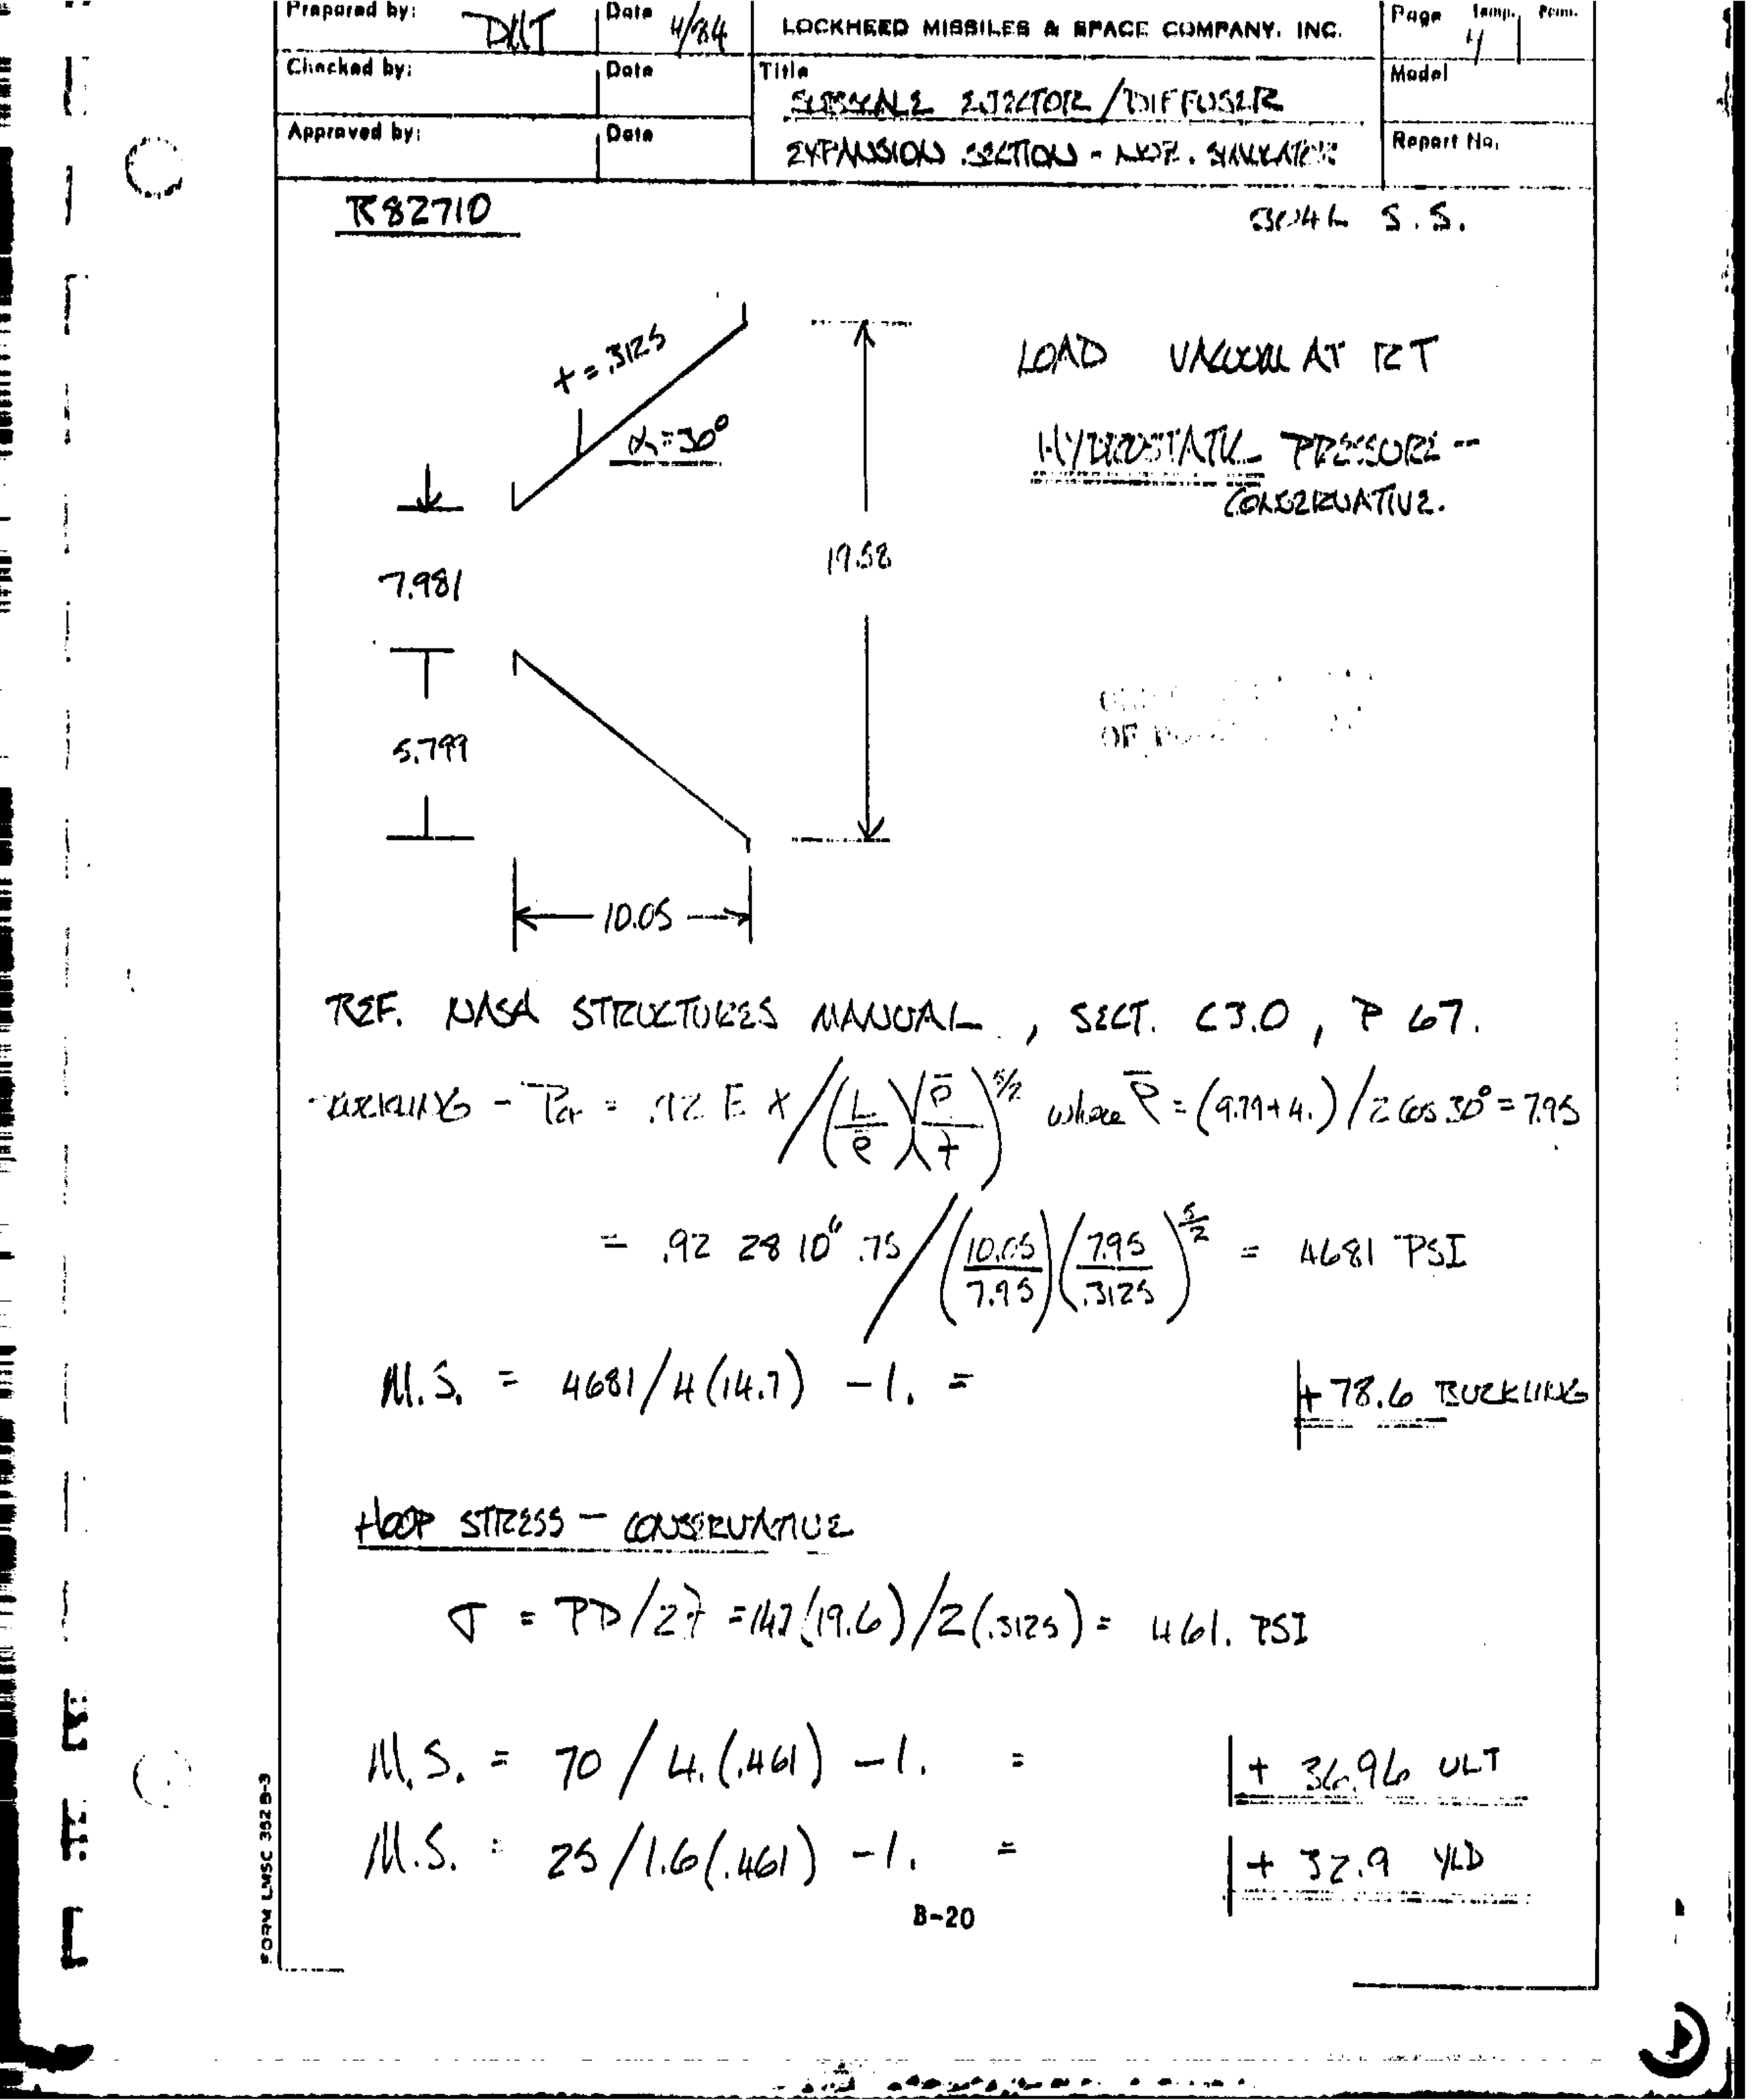 Prepared by: DMT Date 4/84 LOCKHEED MISSILES & SPACE COMPANY, INC. Page Temp. Perm.
4
Checked by: Date Title Model
SUBSCALE EJECTOR / DIFFUSER
Approved by: Date EXPANSION SECTION - NOZ. SIMULATOR Report No.
R82710 304L S.S.
t = .3125
α = 30°
LOAD VACUUM AT RT
HYDROSTATIC PRESSURE --
CONSERVATIVE.
7.981
19.58
5.799
10.05
REF. NASA STRUCTURES MANUAL, SECT. C3.0, P 67.
BUCKLING - Pcr = .92 E γ / (L/ρ̄)(ρ̄/t)^5/2 where ρ̄ = (9.79+4.)/2 cos 30° = 7.95
= .92 28 10⁶ .75 / (10.05/7.95)(7.95/.3125)^5/2 = 4681 PSI
M.S. = 4681/4(14.7) - 1. = + 78.6 BUCKLING
HOOP STRESS - CONSERVATIVE
σ = PD/2t = 14.7(19.6)/2(.3125) = 461. PSI
M.S. = 70 / 4.(.461) - 1. = + 36.96 ULT
M.S. = 25/1.6(.461) - 1. = + 32.9 YLD
B-20
FORM LMSC 352 B-3